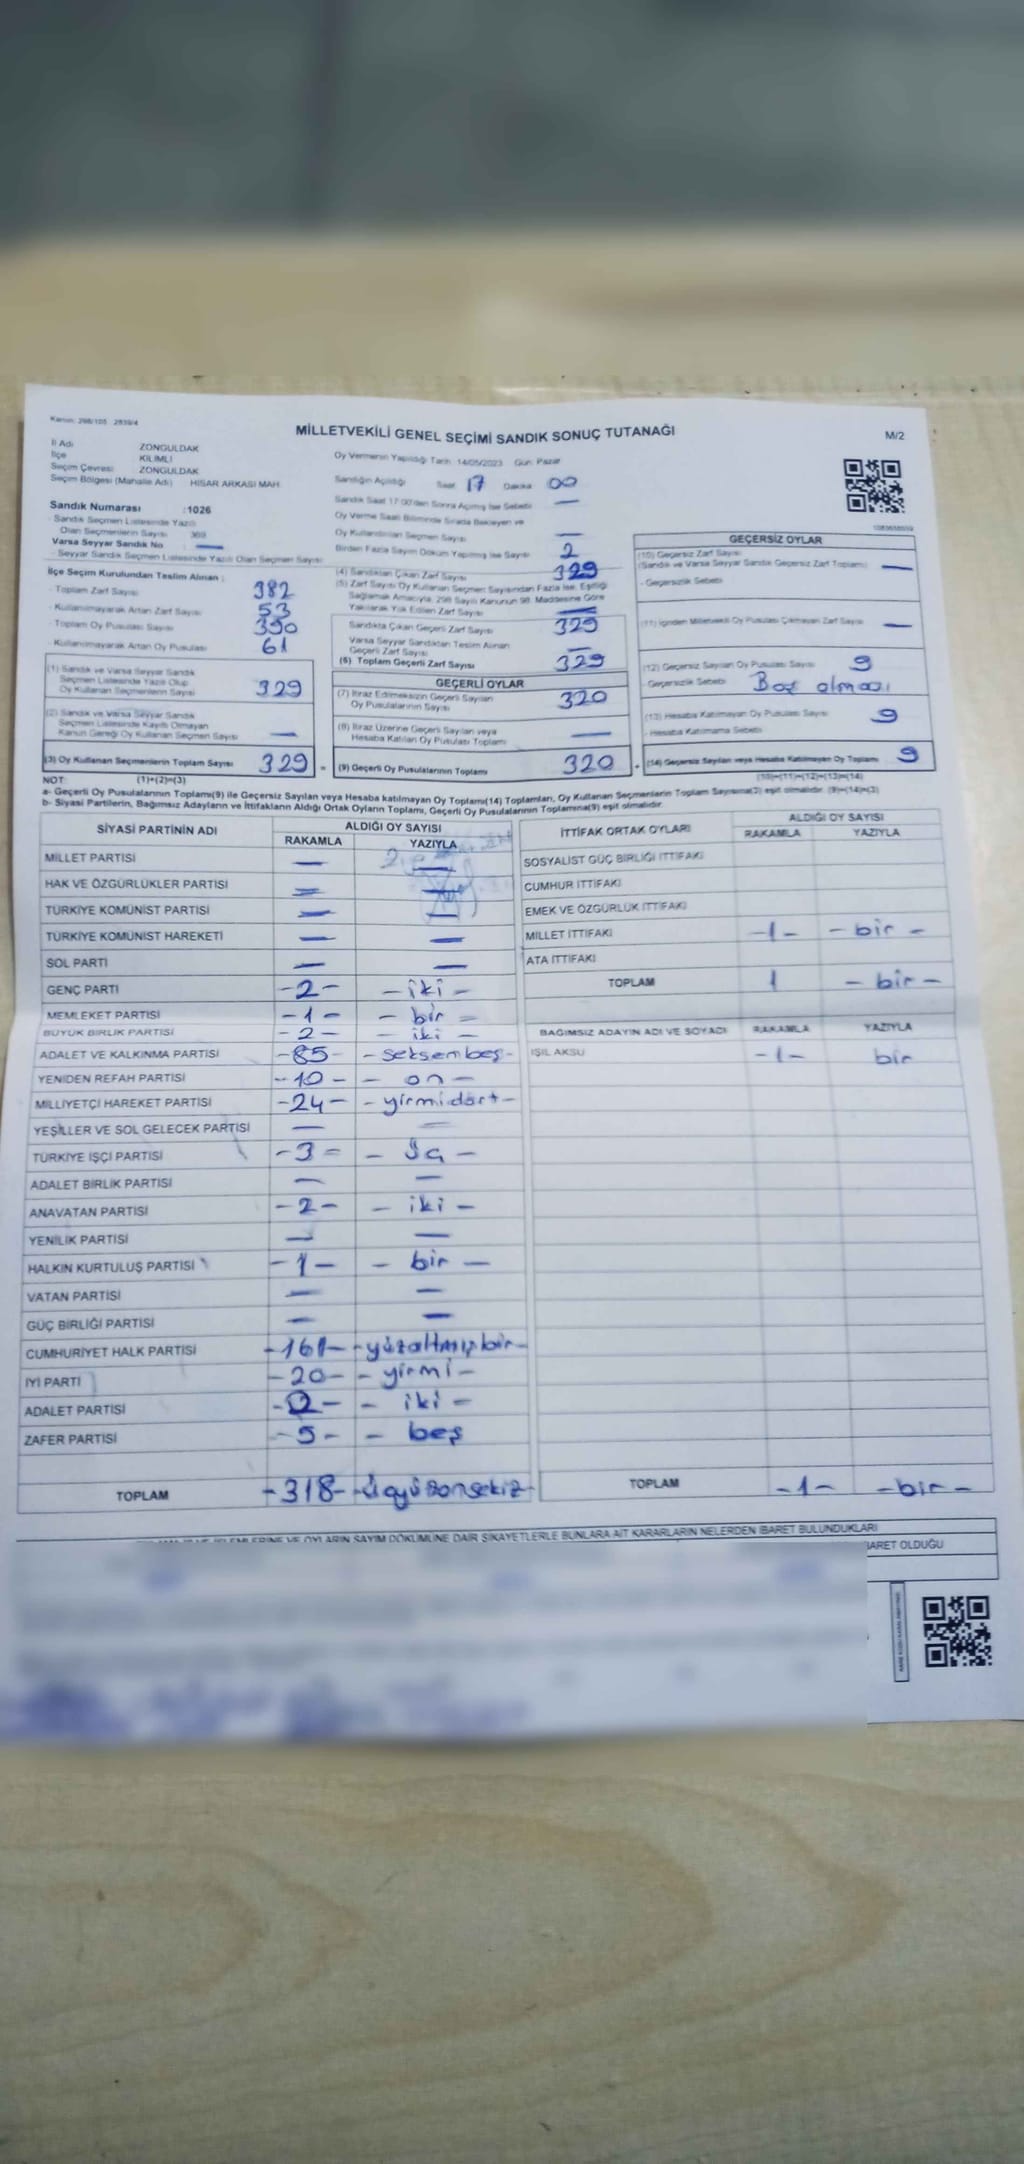 Kanun: 298/105 2839/4
MİLLETVEKİLİ GENEL SEÇİMİ SANDIK SONUÇ TUTANAĞI
M/2
İl Adı ZONGULDAK
İlçe KİLİMLİ
Seçim Çevresi ZONGULDAK
Seçim Bölgesi (Mahalle Adı) HİSAR ARKASI MAH.
Sandık Numarası :1026
Sandık Seçmen Listesinde Yazılı
Olan Seçmenlerin Sayısı 369
Varsa Seyyar Sandık No : —
Seyyar Sandık Seçmen Listesinde Yazılı Olan Seçmen Sayısı
İlçe Seçim Kurulundan Teslim Alınan :
- Toplam Zarf Sayısı 382
- Kullanılmayarak Artan Zarf Sayısı 53
- Toplam Oy Pusulası Sayısı 390
- Kullanılmayarak Artan Oy Pusulası 61
(1) Sandık ve Varsa Seyyar Sandık
Seçmen Listesinde Yazılı Olup
Oy Kullanan Seçmenlerin Sayısı 329
(2) Sandık ve Varsa Seyyar Sandık
Seçmen Listesinde Kayıtlı Olmayan
Kanun Gereği Oy Kullanan Seçmen Sayısı —
(3) Oy Kullanan Seçmenlerin Toplam Sayısı 329 =
Oy Vermenin Yapıldığı Tarih: 14/05/2023 Gün: Pazar
Sandığın Açıldığı Saat 17 Dakika 00
Sandık Saat 17:00'den Sonra Açılmış İse Sebebi —
Oy Verme Saati Bitiminde Sırada Bekleyen ve
Oy Kullandırılan Seçmen Sayısı —
Birden Fazla Sayım Döküm Yapılmış İse Sayısı 2
(4) Sandıktan Çıkan Zarf Sayısı 329
(5) Zarf Sayısı Oy Kullanan Seçmen Sayısından Fazla İse, Eşitliği
Sağlamak Amacıyla, 298 Sayılı Kanunun 98. Maddesine Göre
Yakılarak Yok Edilen Zarf Sayısı —
Sandıkta Çıkan Geçerli Zarf Sayısı 329
Varsa Seyyar Sandıktan Teslim Alınan
Geçerli Zarf Sayısı —
(6) Toplam Geçerli Zarf Sayısı 329
GEÇERLİ OYLAR
(7) İtiraz Edilmeksizin Geçerli Sayılan
Oy Pusulalarının Sayısı 320
(8) İtiraz Üzerine Geçerli Sayılan veya
Hesaba Katılan Oy Pusulası Toplamı —
(9) Geçerli Oy Pusulalarının Toplamı 320 +
GEÇERSİZ OYLAR
(10) Geçersiz Zarf Sayısı
(Sandık ve Varsa Seyyar Sandık Geçersiz Zarf Toplamı) —
- Geçersizlik Sebebi
(11) İçinden Milletvekili Oy Pusulası Çıkmayan Zarf Sayısı —
(12) Geçersiz Sayılan Oy Pusulası Sayısı 9
- Geçersizlik Sebebi Boş olması
(13) Hesaba Katılmayan Oy Pusulası Sayısı 9
- Hesaba Katılmama Sebebi
(14) Geçersiz Sayılan veya Hesaba Katılmayan Oy Toplamı 9
(10)+(11)+(12)+(13)=(14)
NOT: (1)+(2)=(3)
a- Geçerli Oy Pusulalarının Toplamı(9) ile Geçersiz Sayılan veya Hesaba katılmayan Oy Toplamı(14) Toplamları, Oy Kullanan Seçmenlerin Toplam Sayısına(3) eşit olmalıdır. (9)+(14)=(3)
b- Siyasi Partilerin, Bağımsız Adayların ve İttifakların Aldığı Ortak Oyların Toplamı, Geçerli Oy Pusulalarının Toplamına(9) eşit olmalıdır.
SİYASİ PARTİNİN ADI ALDIĞI OY SAYISI
RAKAMLA YAZIYLA
MİLLET PARTİSİ — —
HAK VE ÖZGÜRLÜKLER PARTİSİ — —
TÜRKİYE KOMÜNİST PARTİSİ — —
TÜRKİYE KOMÜNİST HAREKETİ — —
SOL PARTİ — —
GENÇ PARTİ -2- - iki -
MEMLEKET PARTİSİ -1- - bir -
BÜYÜK BİRLİK PARTİSİ -2- - iki -
ADALET VE KALKINMA PARTİSİ -85- - seksembeş -
YENİDEN REFAH PARTİSİ -10- - on -
MİLLİYETÇİ HAREKET PARTİSİ -24- - yirmidört -
YEŞİLLER VE SOL GELECEK PARTİSİ — —
TÜRKİYE İŞÇİ PARTİSİ -3- - üç -
ADALET BİRLİK PARTİSİ — —
ANAVATAN PARTİSİ -2- - iki -
YENİLİK PARTİSİ — —
HALKIN KURTULUŞ PARTİSİ -1- - bir -
VATAN PARTİSİ — —
GÜÇ BİRLİĞİ PARTİSİ — —
CUMHURİYET HALK PARTİSİ -161- - yüzaltmışbir -
İYİ PARTİ -20- - yirmi -
ADALET PARTİSİ -2- - iki -
ZAFER PARTİSİ -5- - beş
TOPLAM -318- - üçyüzonsekiz -
İTTİFAK ORTAK OYLARI ALDIĞI OY SAYISI
RAKAMLA YAZIYLA
SOSYALİST GÜÇ BİRLİĞİ İTTİFAKI
CUMHUR İTTİFAKI
EMEK VE ÖZGÜRLÜK İTTİFAKI
MİLLET İTTİFAKI -1- - bir -
ATA İTTİFAKI
TOPLAM 1 - bir -
BAĞIMSIZ ADAYIN ADI VE SOYADI RAKAMLA YAZIYLA
IŞIL AKSU -1- bir
TOPLAM -1- -bir-
İŞLEMLERİNE VE OYLARIN SAYIM DÖKÜMÜNE DAİR ŞİKAYETLERLE BUNLARA AİT KARARLARIN NELERDEN İBARET BULUNDUKLARI
İBARET OLDUĞU